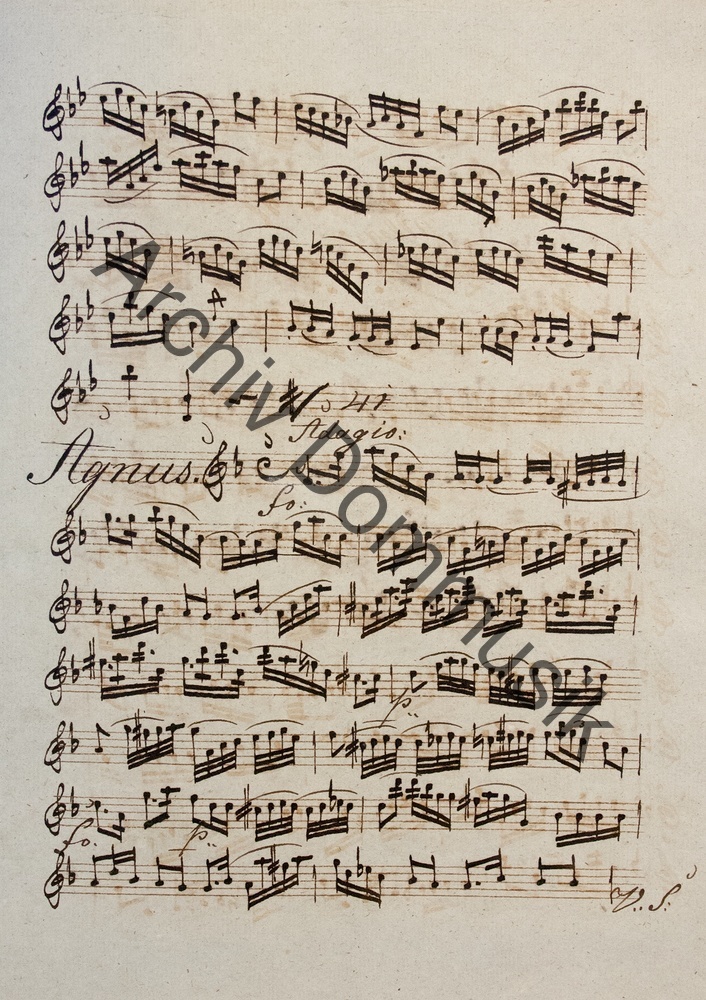 Adagio:
Agnus.
fo:
p:
fo.
p:
V: S:
Archiv Dommusik